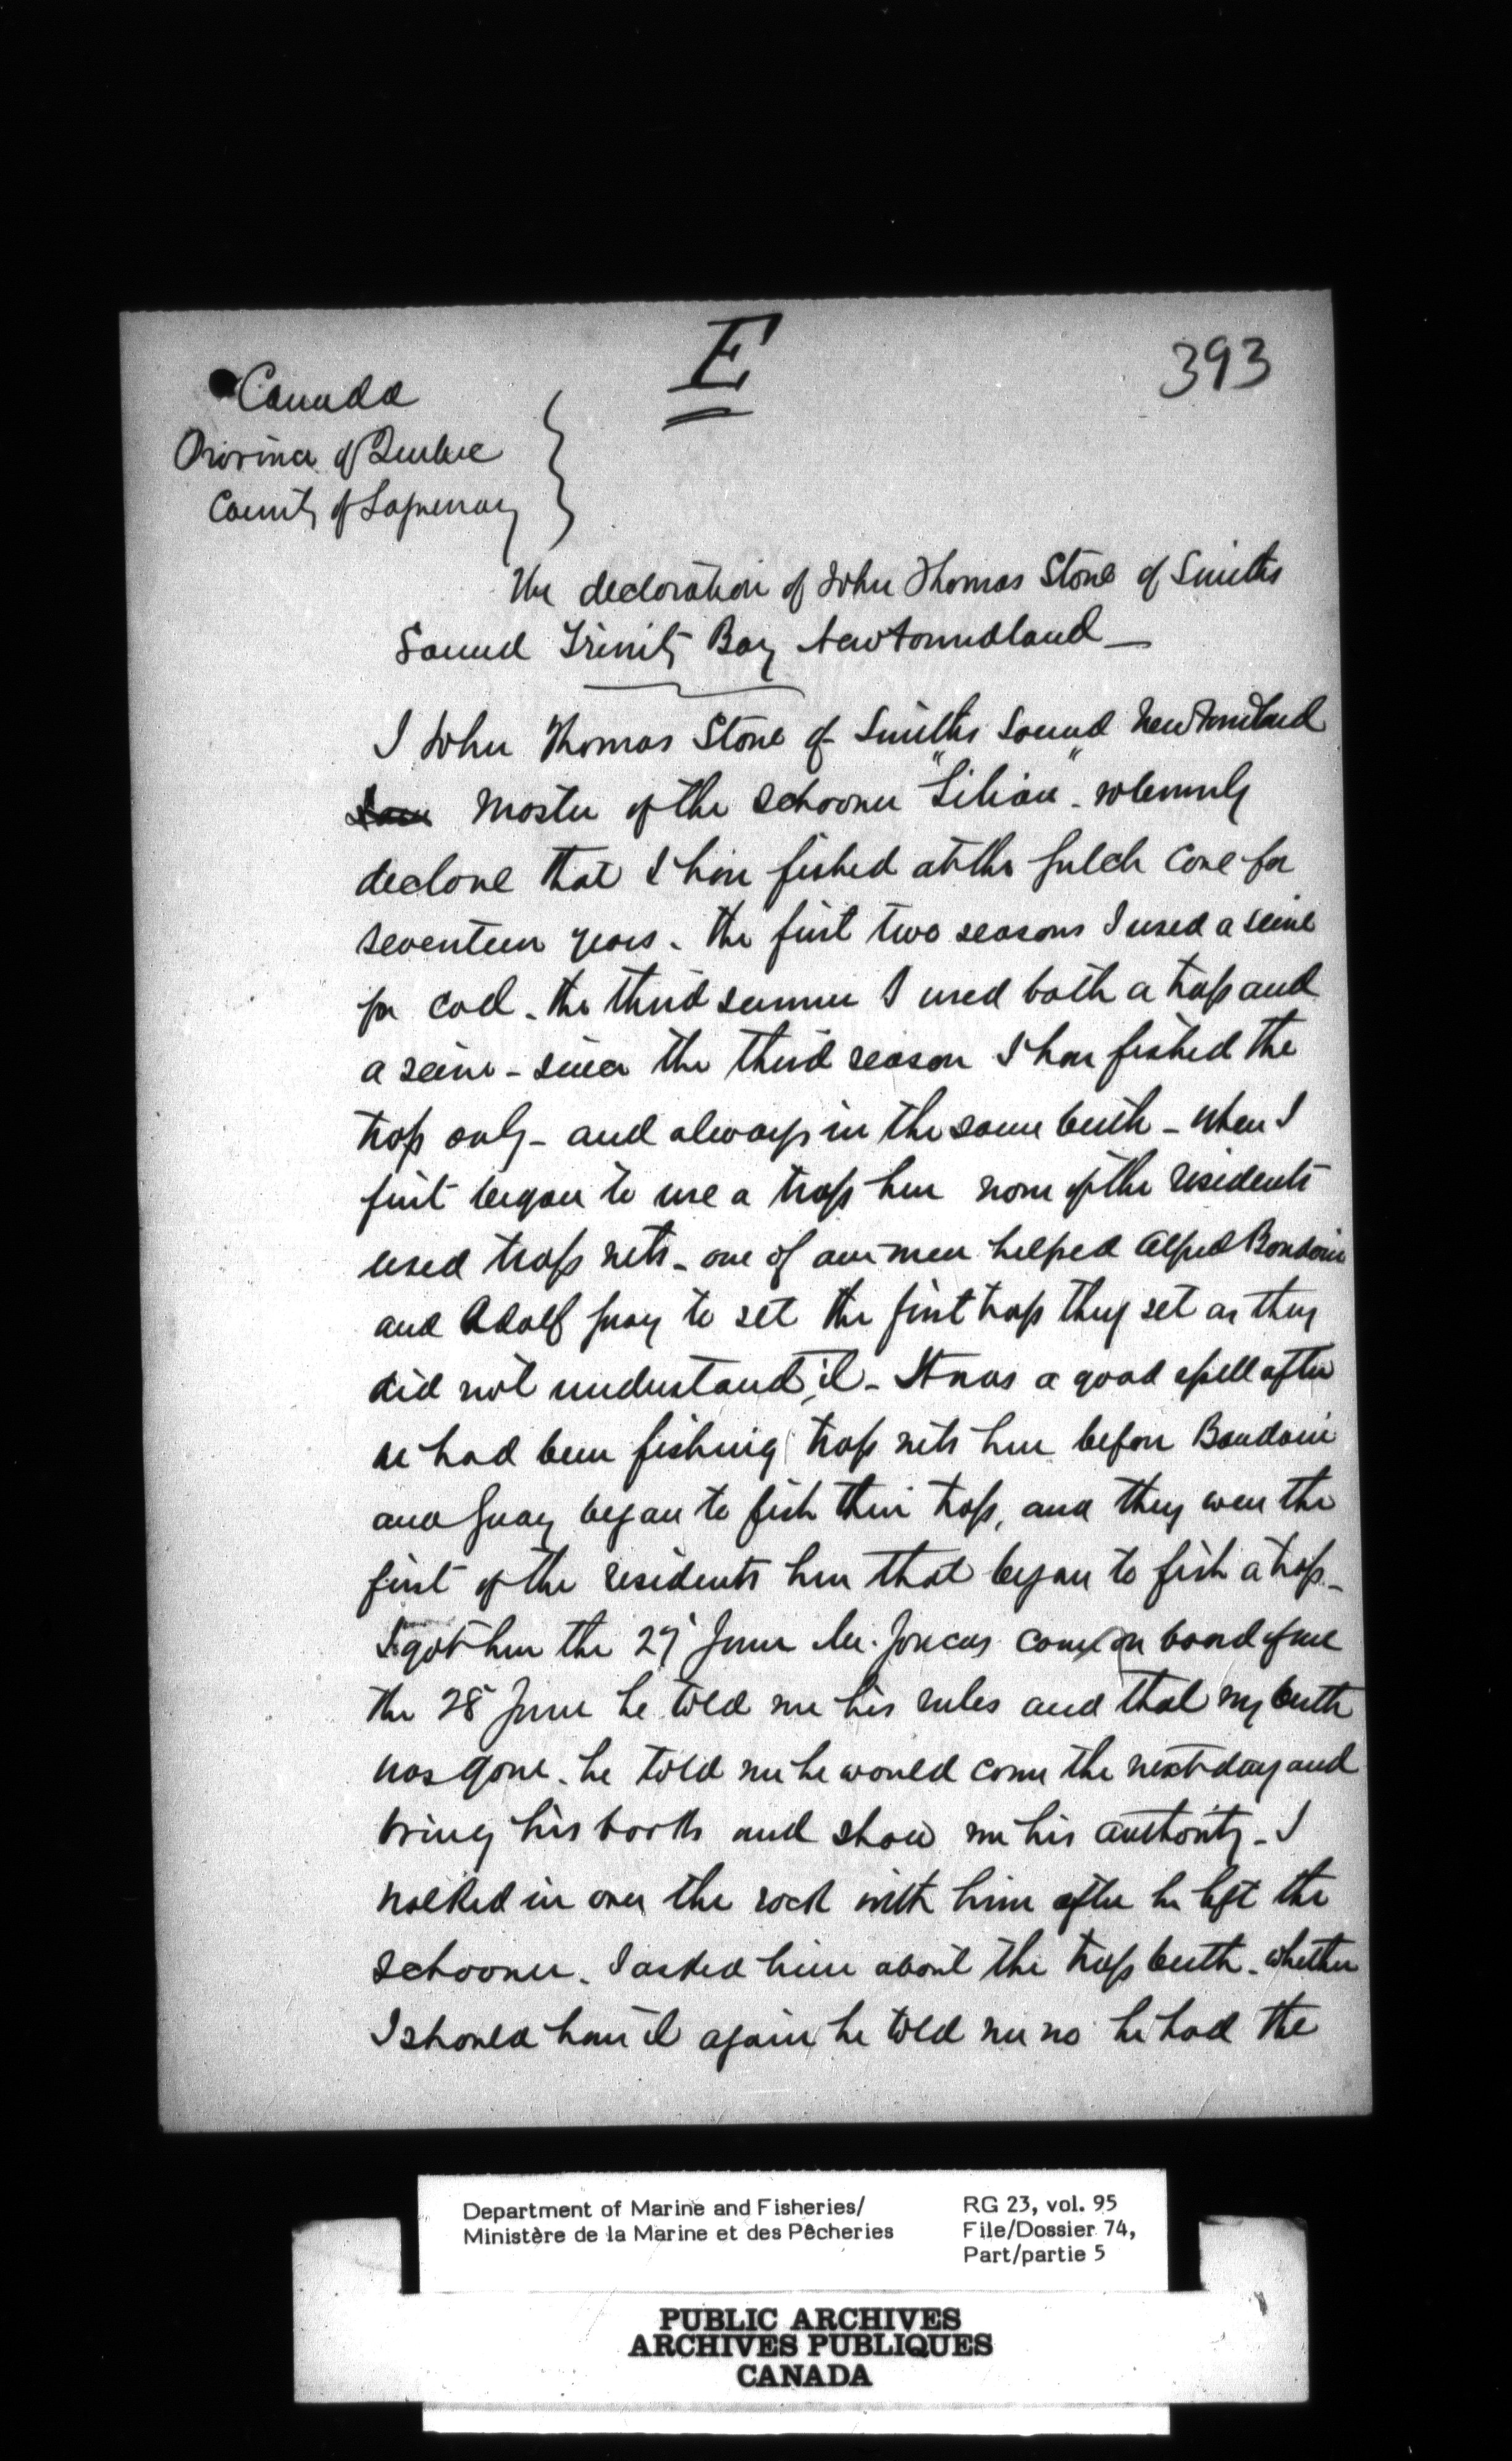 E
393
Canada
Province of Quebec
County of Saguenay
The declaration of John Thomas Stone of Smiths
Sound Trinity Bay Newfoundland —
I John Thomas Stone of Smiths Sound Newfoundland
Master of the Schooner "Lilian" - solemnly
declare that I have fished at the Gulch Cove for
seventeen years - the first two seasons I used a seine
for cod - the third summer I used both a trap and
a seine - since the third season I have fished the
trap only - and always in the same berth - when I
first began to use a trap here none of the residents
used trap nets - one of our men helped Alfred Boudoin
and Adolf Guay to set the first trap they set as they
did not understand it - It was a good spell after
we had been fishing trap nets here before Baudoin
and Guay began to fish their trap, and they were the
first of the residents here that began to fish a trap -
I got here the 27 June Mr. Joncas came on board of me
the 28 June he told me his rules and that my berth
was gone - he told me he would come the next day and
bring his books and show me his authority - I
walked in over the rock with him after he left the
schooner. I asked him about the trap berth - whether
I should have it again he told me no he had the
Department of Marine and Fisheries/
Ministère de la Marine et des Pêcheries
RG 23, vol. 95
File/Dossier 74,
Part/partie 5
PUBLIC ARCHIVES
ARCHIVES PUBLIQUES
CANADA